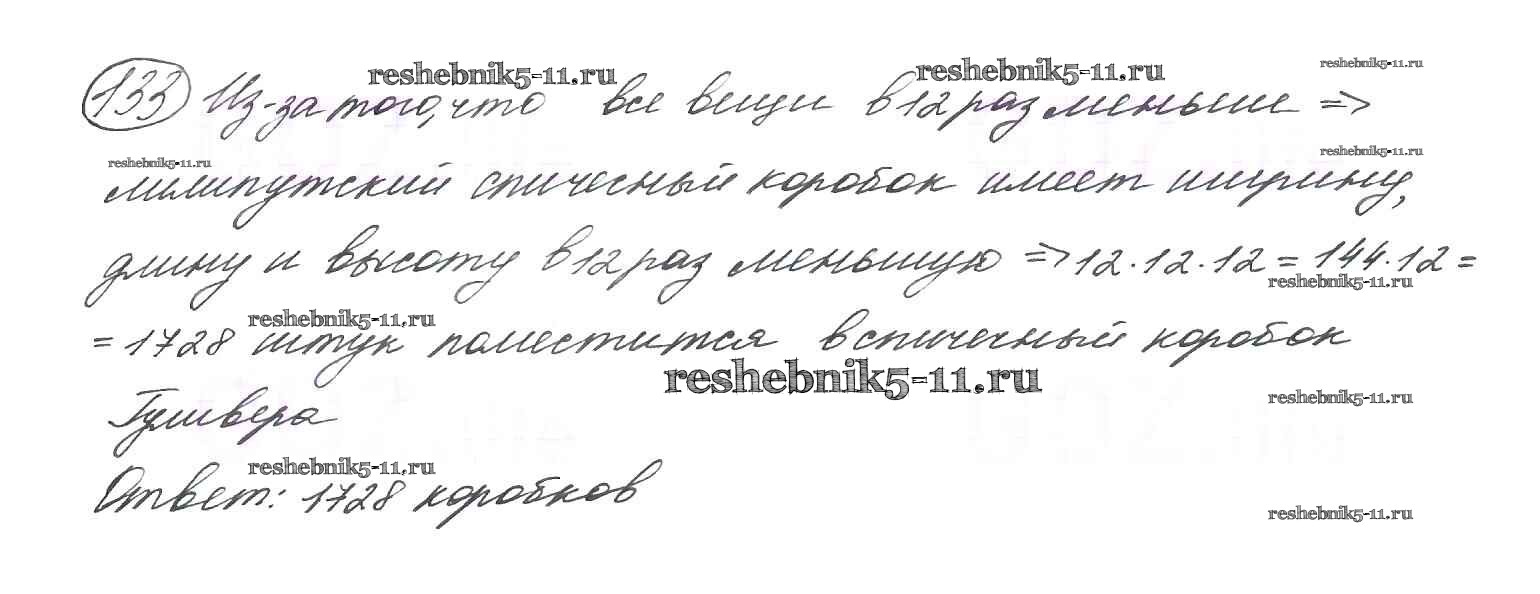 reshebnik5-11.ru reshebnik5-11.ru reshebnik5-11.ru
133 Из-за того, что все вещи в 12 раз меньше =>
reshebnik5-11.ru reshebnik5-11.ru
лилипутский спичесный коробок имеет ширину,
длину и высоту в 12 раз меньшую => 12·12·12 = 144·12 =
reshebnik5-11.ru
reshebnik5-11.ru
= 1728 штук поместится в спичечный коробок
reshebnik5-11.ru
reshebnik5-11.ru
Гулливера
reshebnik5-11.ru
Ответ: 1728 коробков
reshebnik5-11.ru